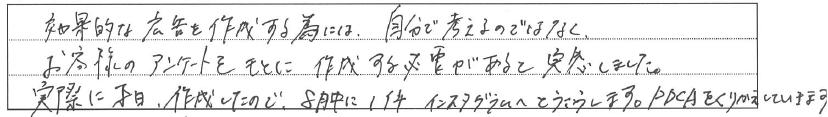 効果的な広告を作成する為には、自分で考えるのではなく、
お客様のアンケートをもとに作成する必要があると実感しました。
実際に本日、作成したので、8月中に1件インスタグラムへとうこうします。PDCAをくりかえしていきます